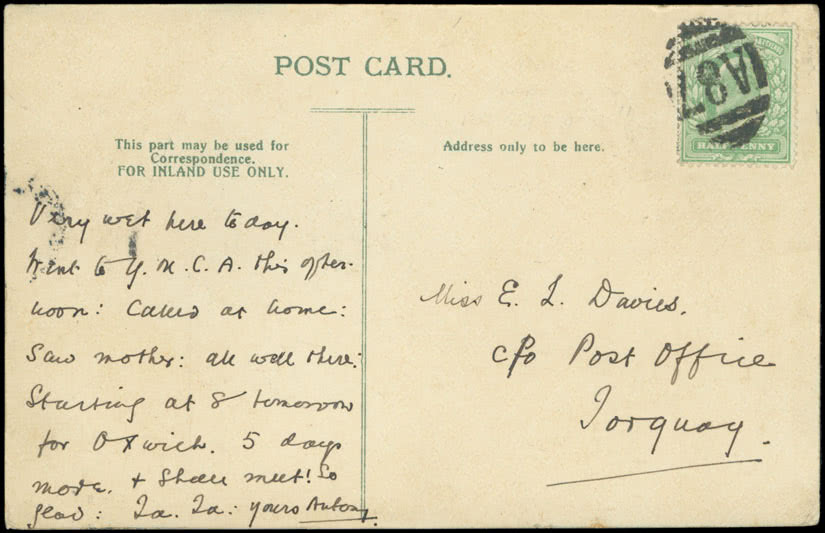 POST CARD.
This part may be used for
Correspondence.
FOR INLAND USE ONLY.
Address only to be here.
A87
HALFPENNY
Very wet here today.
Went to Y. M. C. A. this after-
noon: Called at home:
Saw mother: all well there:
Starting at 8 tomorrow
for Oxwich. 5 days
more. & Shall meet! So
glad: Ta. Ta: yours Antony.
Miss E. L. Davies.
c/o Post Office
Torquay.